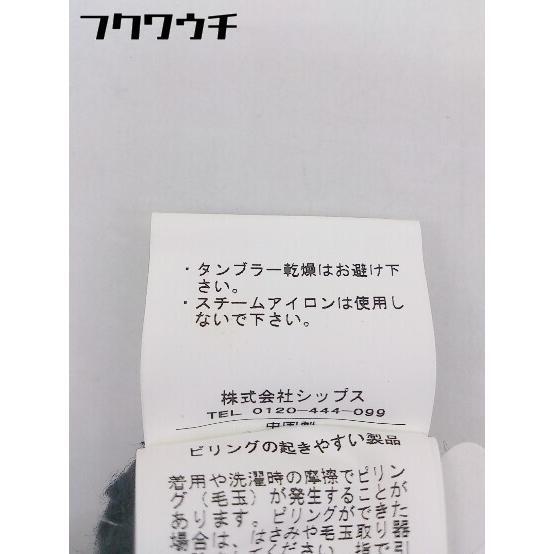 フクワウチ
・タンブラー乾燥はお避け下
さい。
・スチームアイロンは使用し
ないで下さい。
株式会社シップス
TEL 0120-444-099
中国製
ピリングの起きやすい製品
着用や洗濯時の摩擦でピリン
グ（毛玉）が発生することが
あります。ピリングができた
場合は、はさみや毛玉取り器
ください。指で引